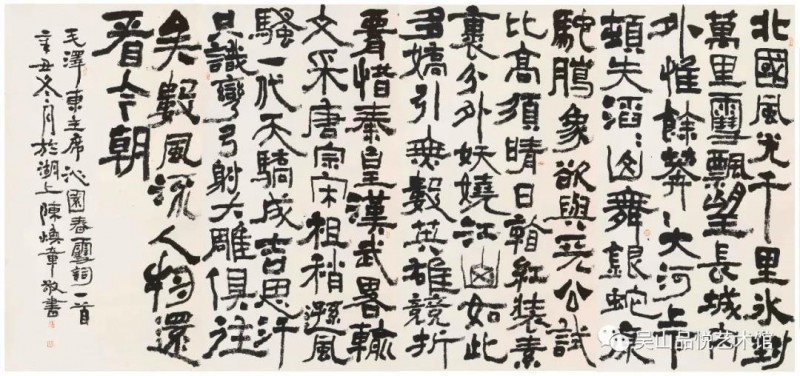 北國風光千里冰封
萬里雪飄望長城内
外惟餘莽〻大河上下
頓失滔〻山舞銀蛇原
馳臘象欲與天公試
比高須晴日看紅裝素
裹分外妖嬈江山如此
多嬌引無數英雄競折
腰惜秦皇漢武畧輸
文采唐宗宋祖稍遜風
騷一代天驕成吉思汗
只識彎弓射大雕俱往
矣數風流人物還
看今朝
毛澤東主席沁園春雪詞一首
辛丑冬月於湖上陳煥章敬書
吴山品悦艺术馆